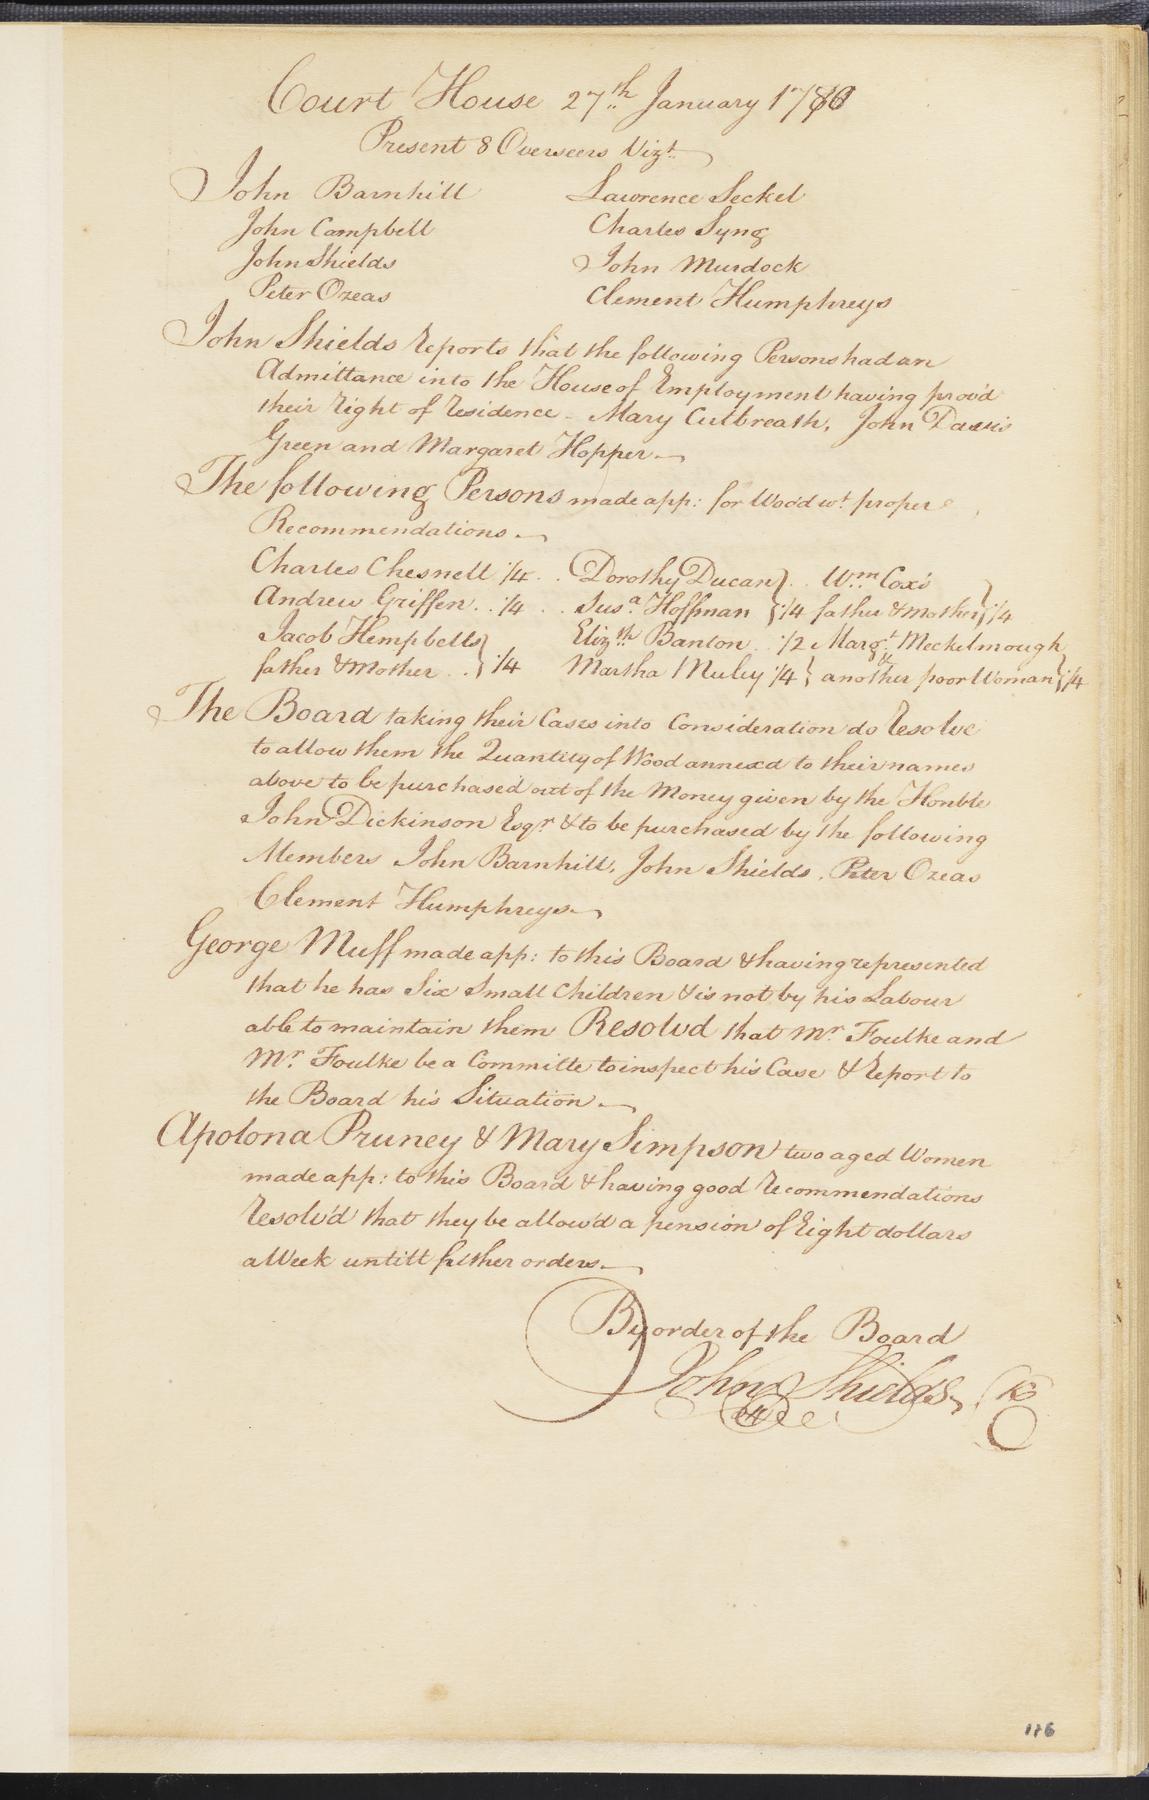 Court House 27th January 1780
Present 8 Overseers Vizt
John Barnhill Lawrence Seckel
John Campbell Charles Syng
John Shields John Murdock
Peter Ozeas Clement Humphreys
John Shields reports that the following Persons had an
Admittance into the House of Employment having prov'd
their right of residence - Mary Cutbreath, John Davis
Green and Margaret Hopper
The following Persons made app: for Wood wt proper
Recommendations
Charles Chesnell 1/4 .. Dorothy Ducan } .. Wm Cox's }
Andrew Griffen .. 1/4 .. Susa Hoffman } 1/4 father & Mother } 1/4
Jacob Hempbells } Elizth Banton .. 1/2 Margt Meckelmough }
father & Mother .. } 1/4 Martha Muley 1/4 } & another poor Woman } 1/4
The Board taking their Cases into Consideration do resolve
to allow them the Quantity of Wood annexd to their names
above to be purchased out of the Money given by the Honble
John Dickinson Esqr & to be purchased by the following
Members John Barnhill, John Shields, Peter Ozeas
Clement Humphreys
George Muff made app: to this Board & having represented
that he has Six Small Children & is not by his Labour
able to maintain them Resolvd that Mr. Foulke and
Mr. Foulke be a Committe to inspect his Case & report to
the Board his Situation
Apolona Pruney & Mary Simpson two aged Women
made app: to this Board & having good recommendations
resolv'd that they be allow'd a pension of Eight dollars
a Week untill futher orders
By order of the Board
John Shields
176